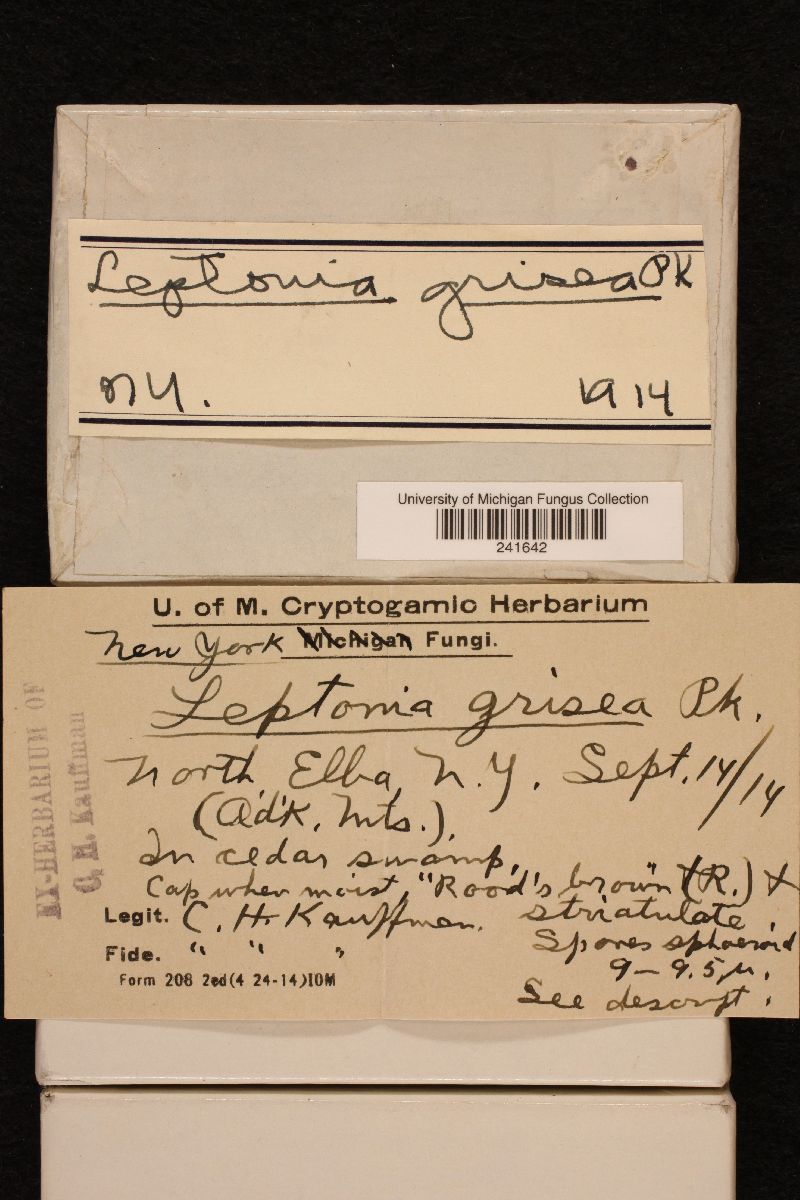 Leptonia grisea Pk
NY. 1914
University of Michigan Fungus Collection
241642
U. of M. Cryptogamic Herbarium
New York Michigan Fungi.
Leptonia grisea Pk.
North Elba, N.Y. Sept. 14/14
(Ad'k. Mts.).
In cedar swamp.
Cap when moist, "Rood's brown" (R.) +
striatulate.
Legit. C. H. Kauffman.
Spores sphaeroid
Fide. " " "
9-9.5 µ.
Form 208 2ed(4 24-14)10M
See descript.
EX-HERBARIUM OF
C. H. Kauffman